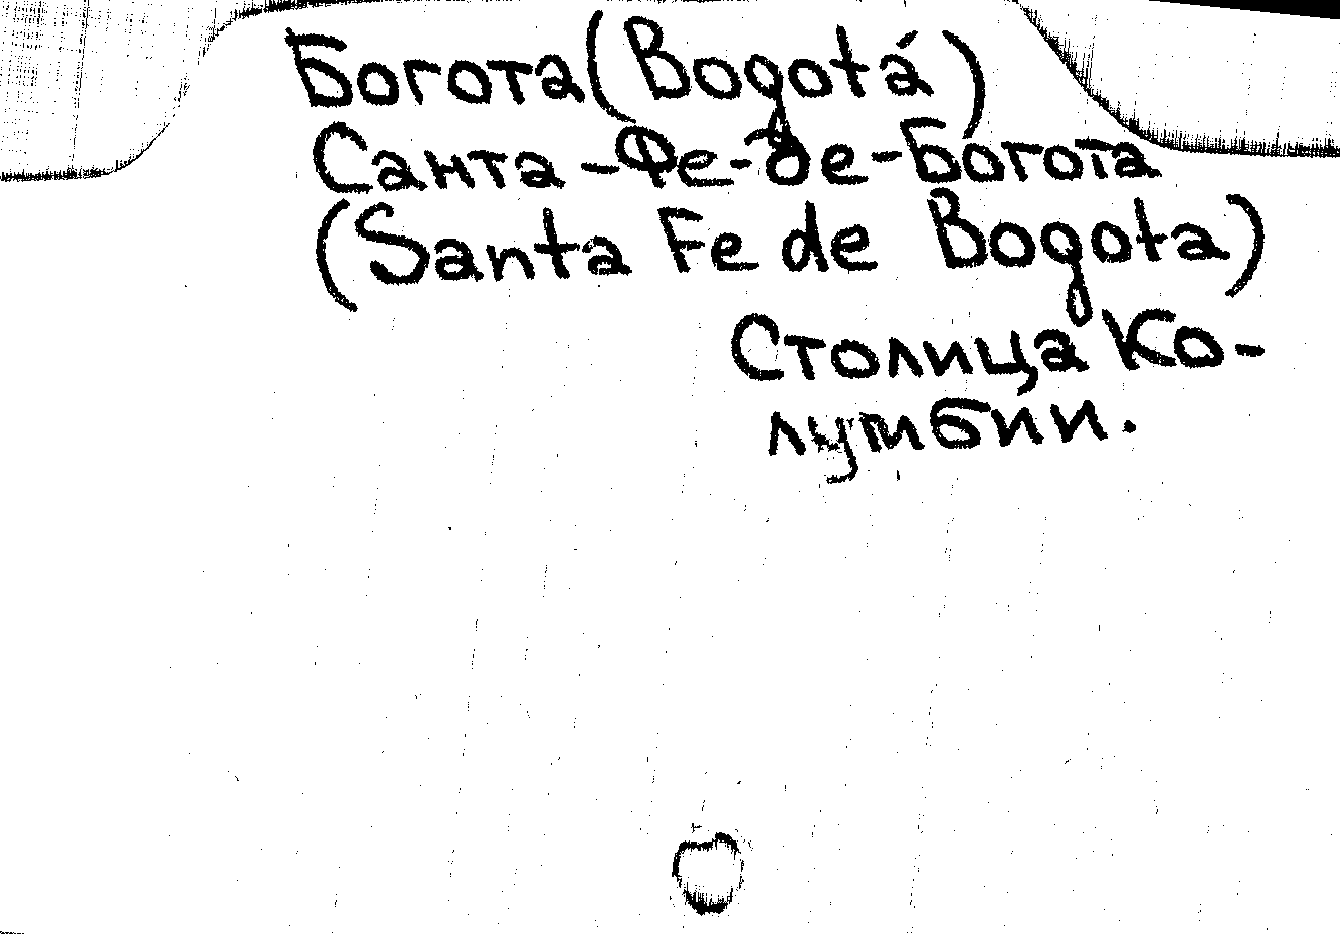 Богота (Bogotá)
Санта-Фе-де-Богота
(Santa Fe de Bogota)
Столица Ко-
лумбии.